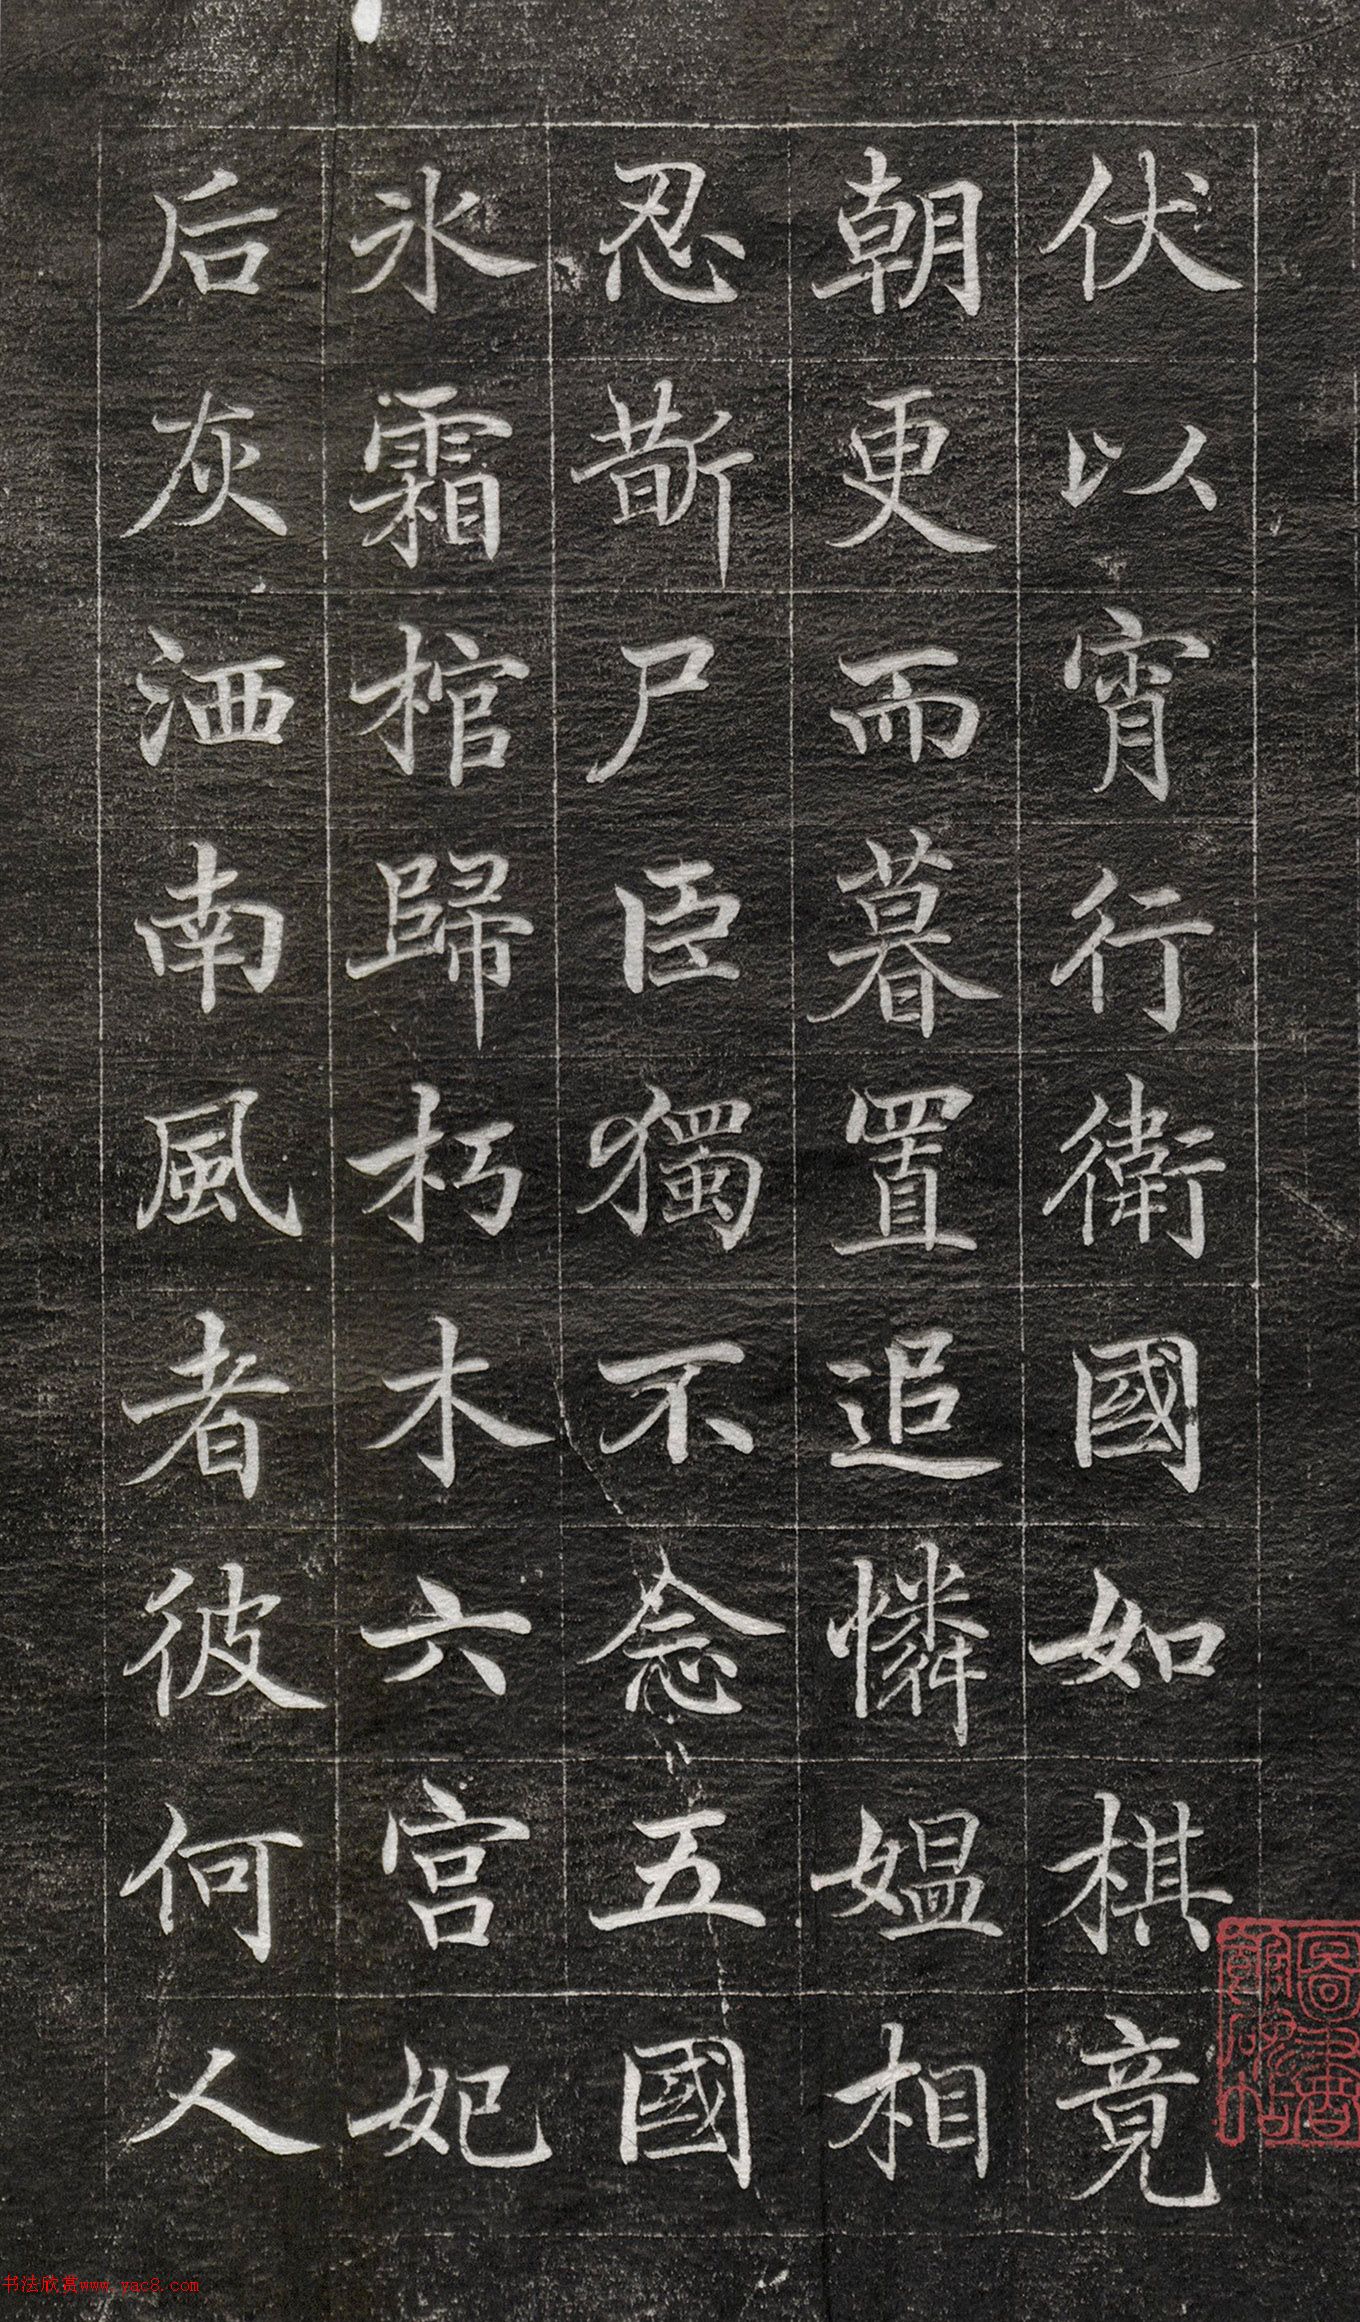 伏以宵行衛國如棋竟
朝更而暮置追憐媼相
忍斮尸臣獨不念五國
氷霜棺歸朽木六宮妃
后灰洒南風者彼何人
书法欣赏www.yac8.com